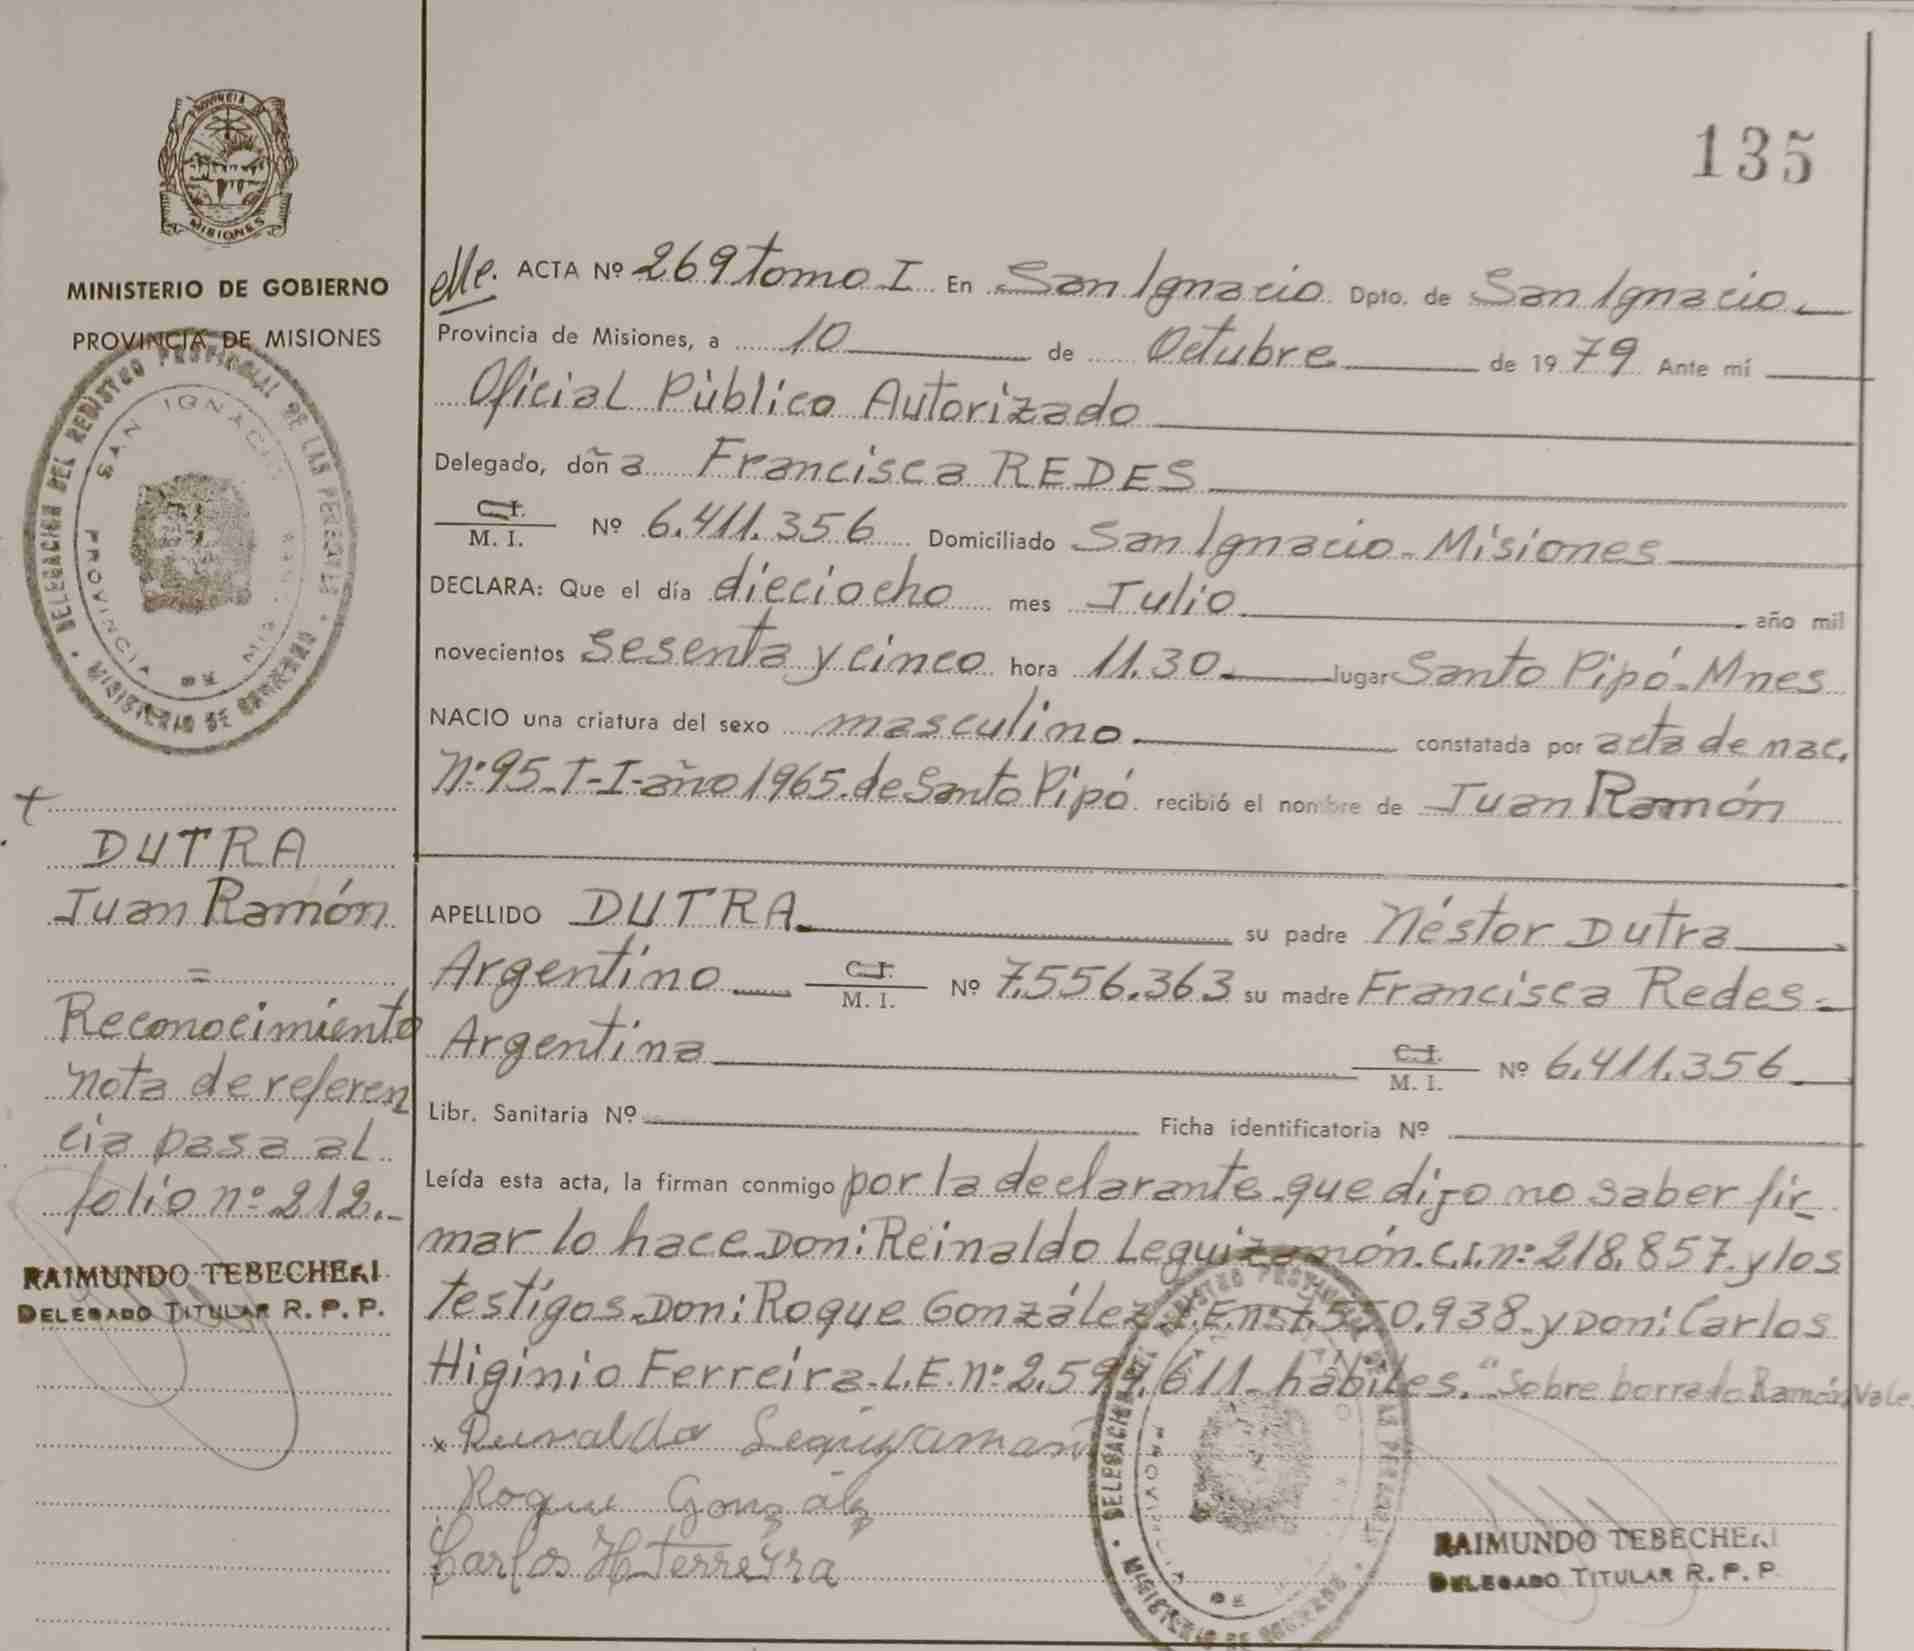 135
PROVINCIA DE
MISIONES
MINISTERIO DE GOBIERNO
PROVINCIA DE MISIONES
DELEGACION DEL REGISTRO PROVINCIAL DE LAS PERSONAS
SAN IGNACIO
PROVINCIA DE
MINISTERIO DE GOBIERNO
DUTRA
Juan Ramón
=
Reconocimiento
nota de referen
cia pasa al
folio nº 212.-
RAIMUNDO TEBECHERI
DELEGADO TITULAR R. P. P.
ACTA Nº 269 tomo I En San Ignacio Dpto. de San Ignacio
Provincia de Misiones, a 10 de Octubre de 1979 Ante mí
Oficial Público Autorizado
Delegado, doña Francisca REDES
C.I. M. I. Nº 6.411.356 Domiciliado San Ignacio - Misiones
DECLARA: Que el día dieciocho mes Julio año mil
novecientos sesenta y cinco hora 11.30 lugar Santo Pipó - Mnes
NACIO una criatura del sexo masculino. constatada por acta de nac.
Nº 95 - T-I - año 1965. de Santo Pipó recibió el nombre de Juan Ramón
APELLIDO DUTRA su padre Néstor Dutra
Argentino C.I. M. I. Nº 7.556.363 su madre Francisca Redes
Argentina C.I. M. I. Nº 6.411.356
Libr. Sanitaria Nº Ficha identificatoria Nº
Leída esta acta, la firman conmigo por la declarante que dijo no saber fir
mar lo hace Don: Reinaldo Leguizamón. C.I. nº 218.857 y los
testigos Don: Roque González L.E. nº 7.550.938 y Don: Carlos
Higinio Ferreira L.E. nº 2.594.611 hábiles. "Sobre borrado Ramón, Vale.
x Reinaldo Leguizamon
Roque Gonzalez
Carlos H Ferreyra
DELEGACION DEL REGISTRO PROVINCIAL DE LAS PERSONAS
PROVINCIA DE
MINISTERIO DE GOBIERNO
RAIMUNDO TEBECHERI
DELEGADO TITULAR R. P. P